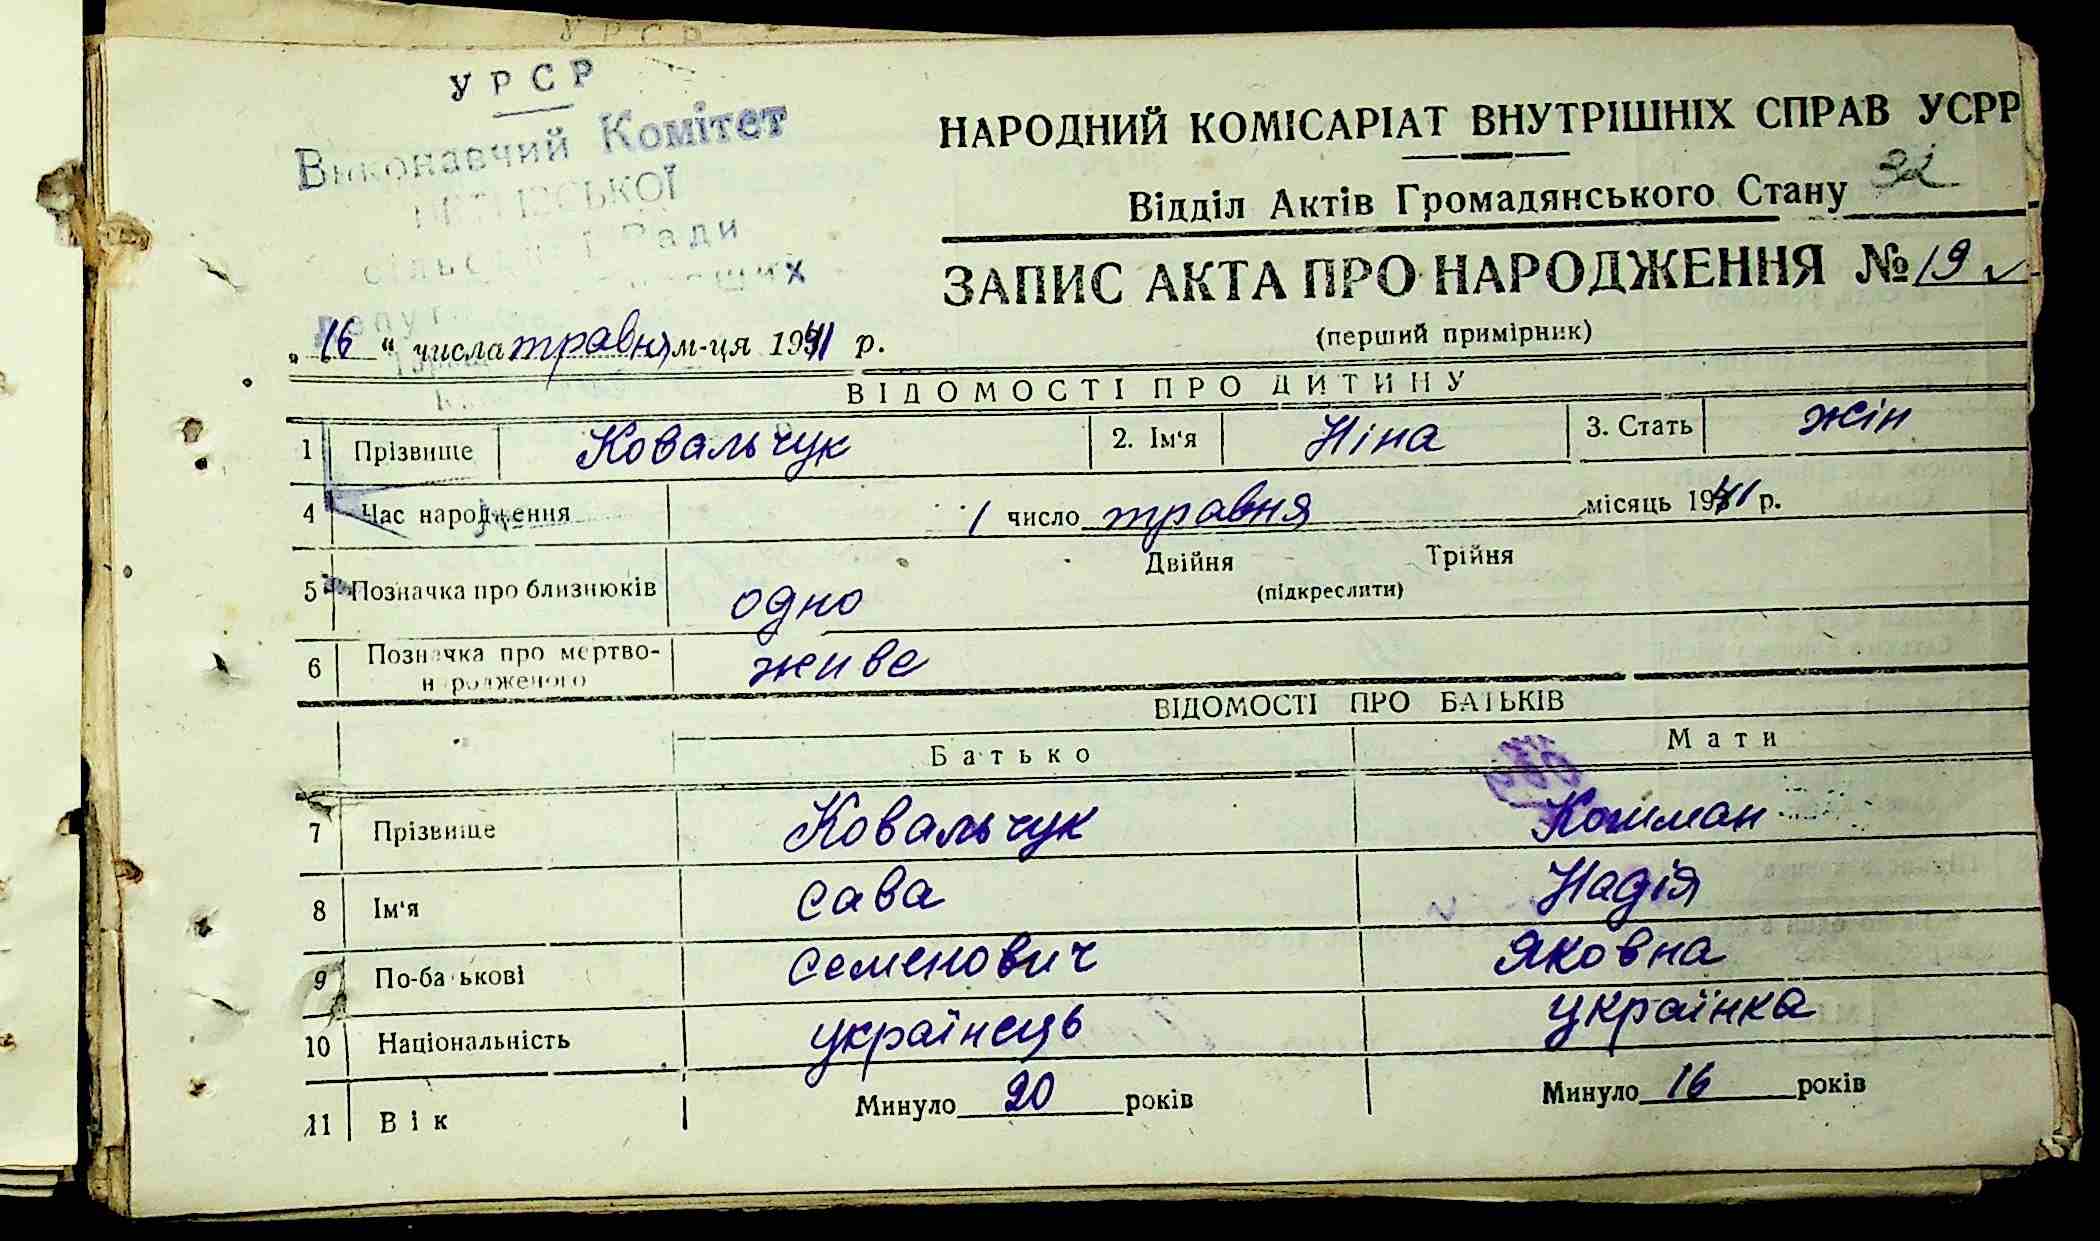 УРСР
Виконавчий Комітет
сільської Ради
НАРОДНИЙ КОМІСАРІАТ ВНУТРІШНІХ СПРАВ УСРР
Відділ Актів Громадянського Стану 32
ЗАПИС АКТА ПРО НАРОДЖЕННЯ № 19
(перший примірник)
„16“ числа травня м-ця 1941 р.
ВІДОМОСТІ ПРО ДИТИНУ
1 Прізвище Ковальчук 2. Ім'я Ніна 3. Стать жін
4 Час народження 1 число травня місяць 1941 р.
5 Позначка про близнюків одно Двійня Трійня
(підкреслити)
6 Позначка про мертво-
народженого живе
ВІДОМОСТІ ПРО БАТЬКІВ
Батько Мати
7 Прізвище Ковальчук Кошман
8 Ім'я Сава Надія
9 По-батькові Семенович Яковна
10 Національність українець українка
11 Вік Минуло 20 років Минуло 16 років